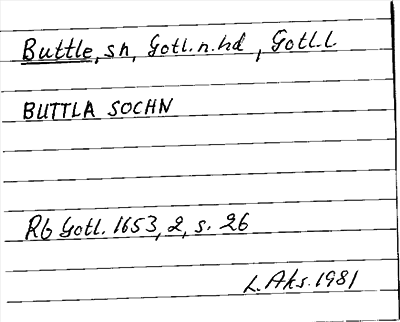 Buttle, sn, Gotl. n. hd, Gotl. L
BUTTLA SOCHN
Rb Gotl. 1653, 2, s. 26
L. Aks. 1981